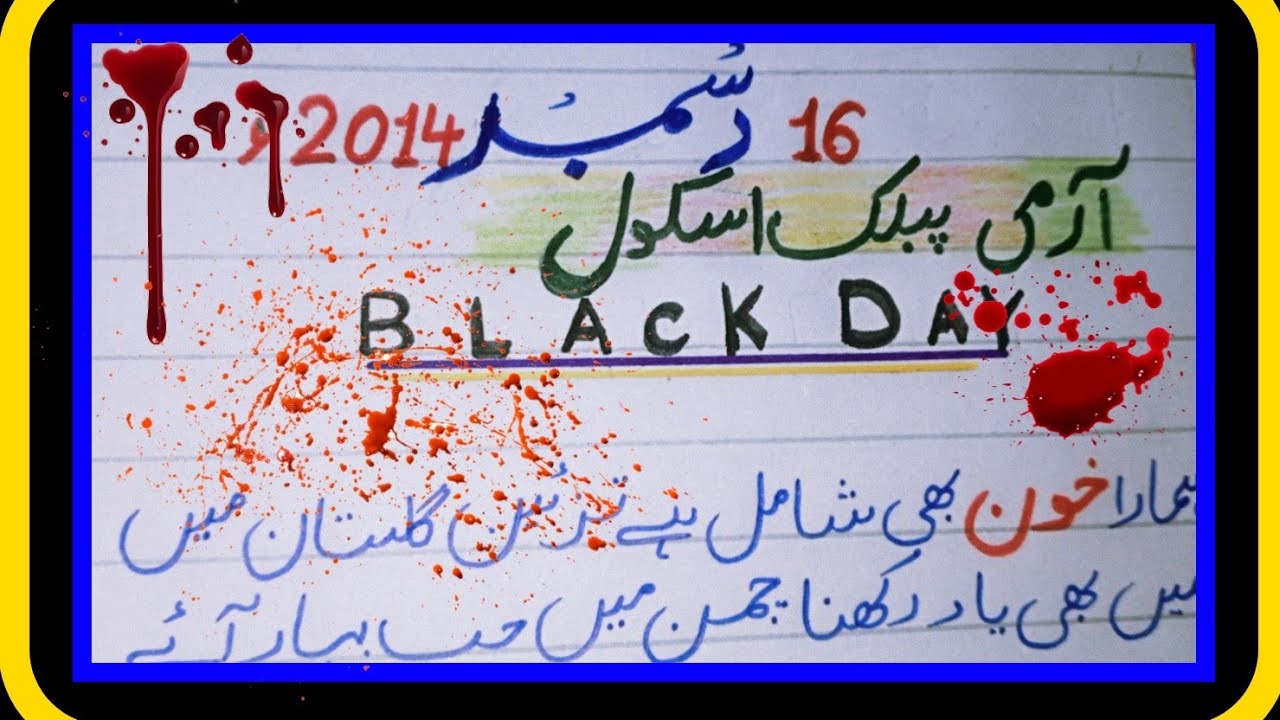 16 دسمبر 2014ء
آرمی پبلک اسکول
BLACK DAY
ہمارا خون بھی شامل ہے تزئیں گلستان میں
ہمیں بھی یاد رکھنا چمن میں جب بہار آئے